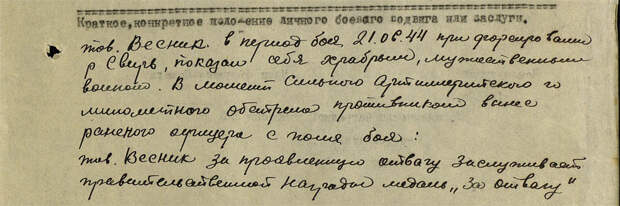 Краткое, конкретное изложение личного боевого подвига или заслуги.
тов. Весник в период боя 21.06.44 при форсировании
р Свирь, показал себя храбрым, мужественным
воином. В момент сильного Артиллерийского
миномётного обстрела противником вынес
раненого офицера с поля боя:
тов. Весник за проявленную отвагу заслуживает
правительственной награды медаль „За отвагу"